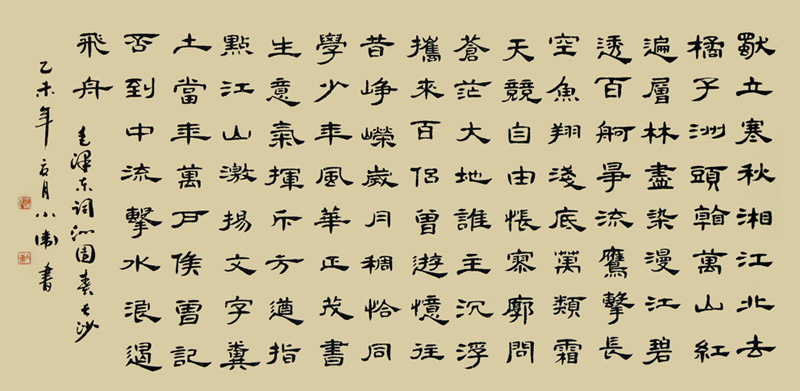 獨立寒秋湘江北去
橘子洲頭看萬山紅
遍層林盡染漫江碧
透百舸爭流鷹擊長
空魚翔淺底萬類霜
天競自由悵寥廓問
蒼茫大地誰主沉浮
攜來百侶曾遊憶往
昔崢嶸歲月稠恰同
學少年風華正茂書
生意氣揮斥方遒指
點江山激揚文字糞
土當年萬戶侯曾記
否到中流擊水浪遏
飛舟 毛澤东词沁園春長沙
乙未年夏月小衛書